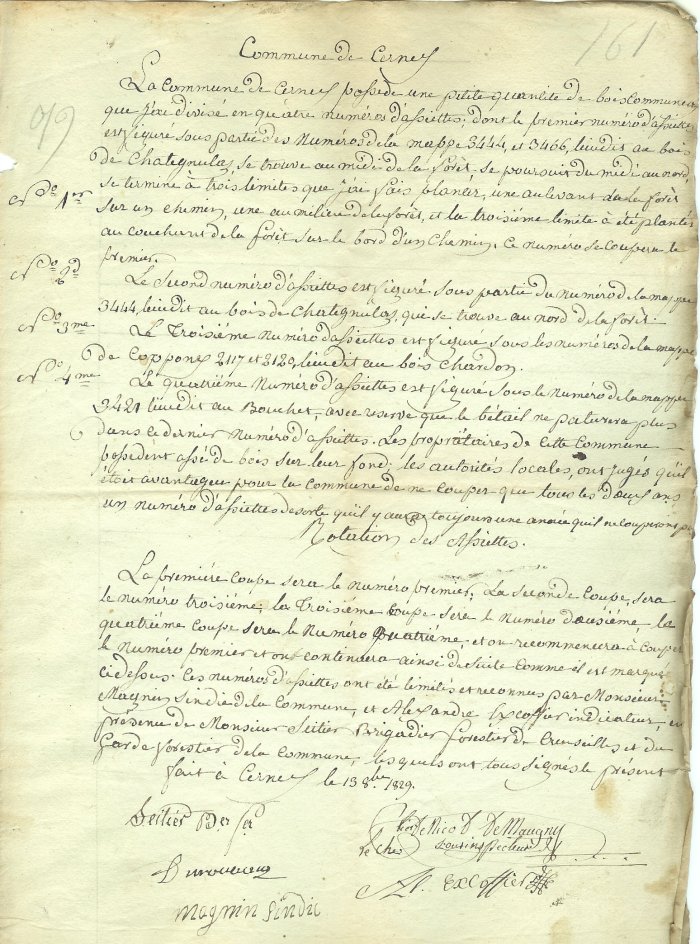 161
Commune de Cernex
99
La Commune de Cernex possède une petite quantité de bois Communeax
que j'ai divisé en quatre numéros d'assiettes; dont le premier numéro d'assiette
est figuré sous partie des Numéros de la mappe 3444, et 3466, lieudit au bois
de Chatagnulas, se trouve au midi de la forêt, se poursuit du midi au nord
No 1er
se termine à trois limites que j'ai fais planter, une au levant de la forêt
sur un chemin, une au milieu de la forêt, et la troisième limite à été plantée
au couchant de la forêt sur le bord d'un chemin, ce numéro se coupera le
premier.
No 2d
Le second numéro d'assiettes est figuré sous partie du numéro de la mappe
3444, lieudit au bois de Chatagnulas, que se trouve au nord de la forêt.
No 3me
Le Troisième numéro d'assiettes est figuré sous les numéros de la mappe
de Copponex 2117 et 2120, lieudit au bois Chardon.
No 4me
Le quatrième Numéro d'assiettes est figuré sous le numéro de la mappe
3421 lieudit au Bouchet, avec reserve que le bétail ne paturera plus
dans ce dernier numéro d'assiettes. Les propriétaires de cette Commune
possèdent assé de bois sur leur fond; les autorités locales, ont jugés qu'il
étoit avantageux pour la Commune de ne couper que tous les deux ans
un numéro d'assiettes desorte qu'il y aura toujours une année qu'il ne couperons pas
Rotation des Assiettes.
La première Coupe sera le numéro premier. La seconde Coupe, sera
le numéro troisième, la Troisième Coupe sera le numéro deuxième la
quatrième Coupe sera le Numéro Quatrième, et on recommencera à Couper
le numéro premier et on continuera ainsi de suite comme il est marqué
cidessus. Les numéros d'assiettes ont été limités et reconnus par Monsieur
Magnin Sindic de la Commune, et Alexandre Excoffier indicateur, en
présence de Monsieur Seitier Brigadier forestier de Cruseilles et du
Garde forestier de la Commune, lesquels ont tous signés le présent
fait à Cernex le 13 8bre 1829.
Seitier Br. fer
De Nico D. De Maugny
le Chev
Sousinspecteur
Al. Excoffier
Magnin Sindic